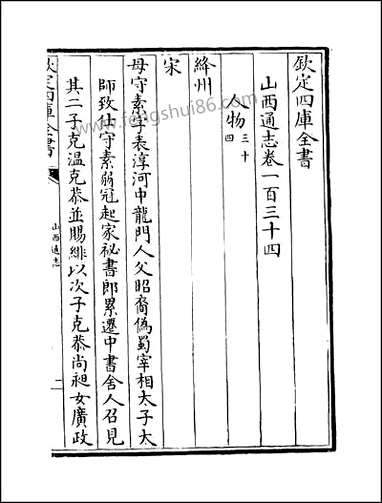 欽定四庫全書
山西通志卷一百三十四
人物三十四
絳州
宋
毋守素字表淳河中龍門人父昭裔偽蜀宰相太子太
師致仕守素弱冠起家秘書郎累遷中書舍人召見
其二子克温克恭並賜緋以次子克恭尚昶女廣政
欽定四庫全書
山西通志